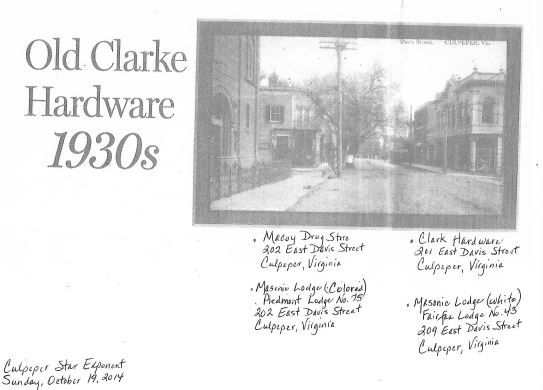 Old Clarke
Hardware
1930s
Davis Street. CULPEPER, Va.
• Macoy Drug Store
202 East Davis Street
Culpeper, Virginia
• Masonic Lodge (Colored)
Piedmont Lodge No. 75
202 East Davis Street
Culpeper, Virginia
• Clark Hardware
201 East Davis Street
Culpeper, Virginia
• Masonic Lodge (white)
Fairfax Lodge No. 43
209 East Davis Street
Culpeper, Virginia
Culpeper Star Exponent
Sunday, October 19, 2014